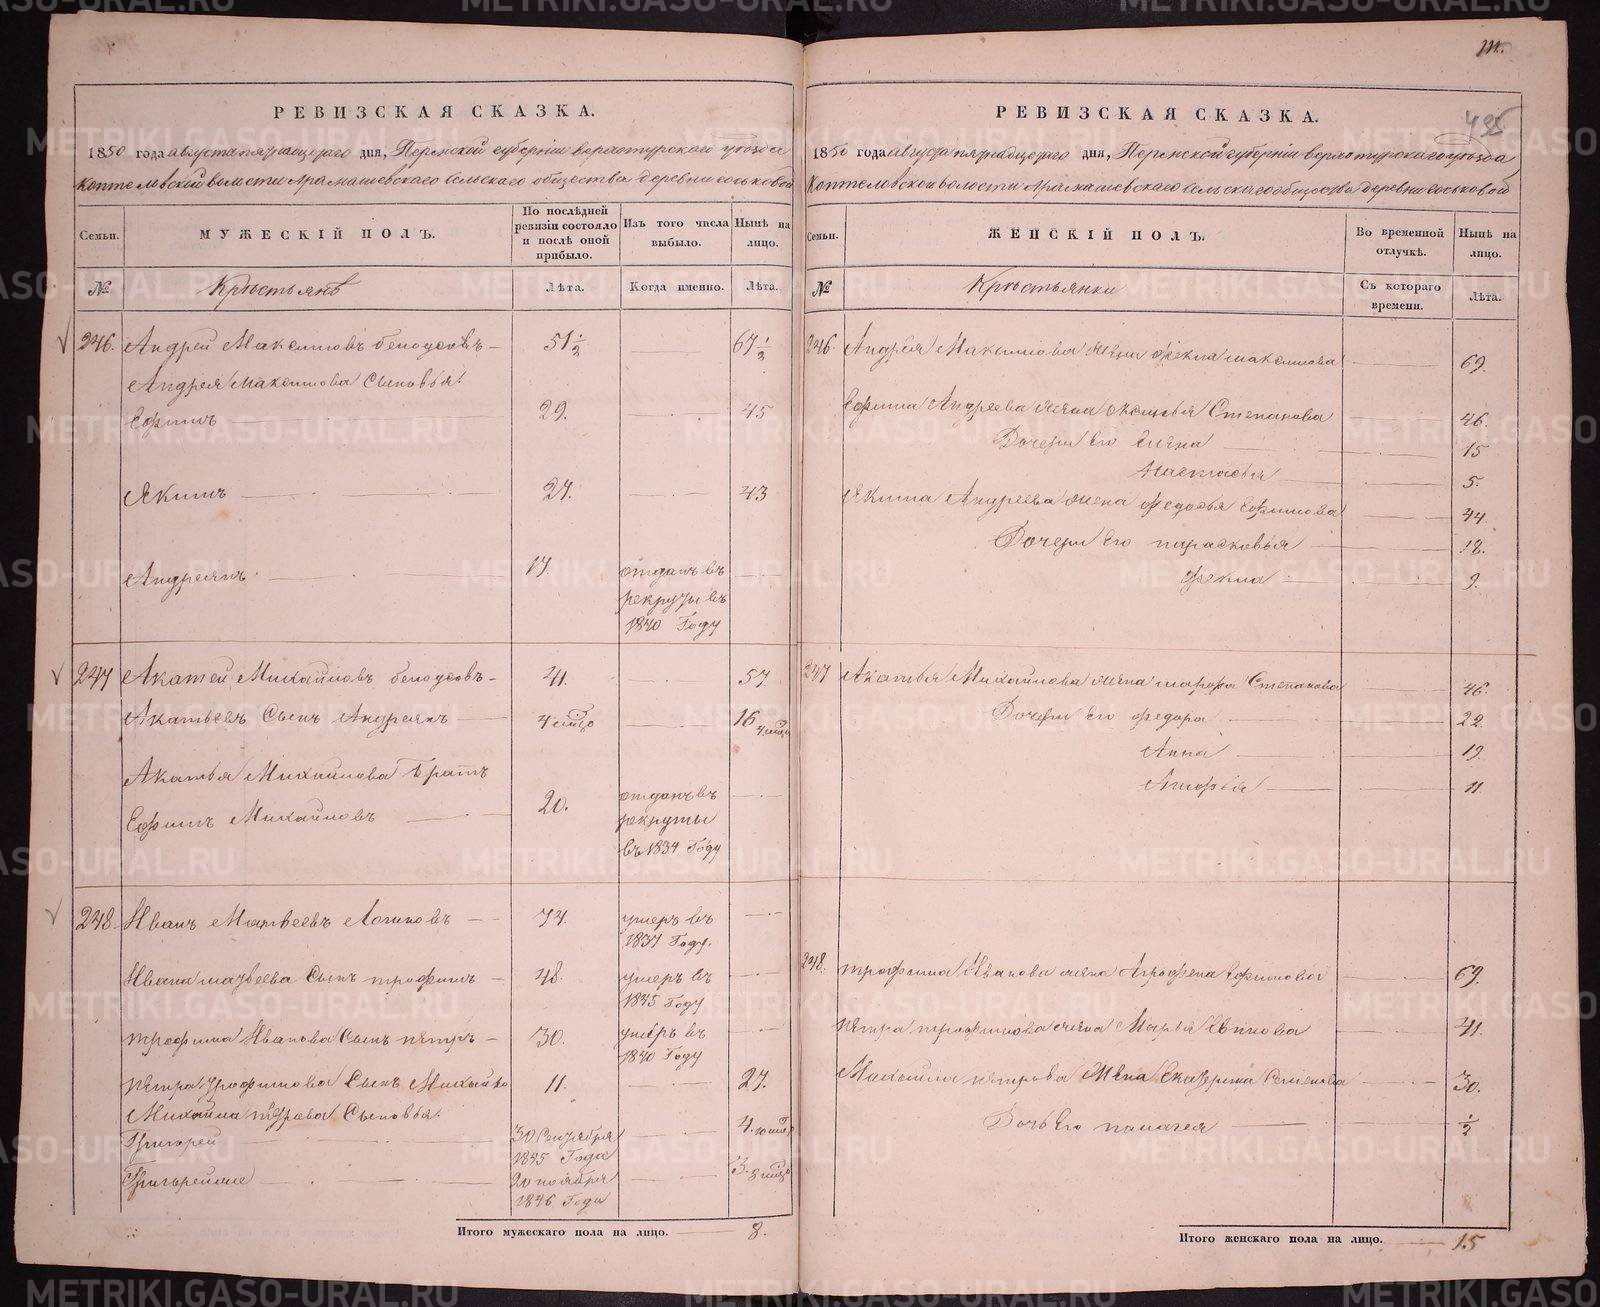 111.
495
РЕВИЗСКАЯ СКАЗКА.
1850 года августа пятнадцатаго дня, Пермской губерніи верхотурскаго уѣзда
Коптеловской волости Арамашевскаго сельскаго общества деревни соськовой
Семьи.
МУЖЕСКІЙ ПОЛЪ.
По послѣдней ревизіи состояло и послѣ оной прибыло.
Изъ того числа выбыло.
Нынѣ на лицо.
№
Крестьянѣ
Лѣта.
Когда именно.
Лѣта.
246. Андрей Максимовъ белоусовъ 51 1/2 67 1/2
Андрея Максимова Сыновья:
Ефимъ 29. 45
Якимъ 27. 43
Андреянъ 17. отданъ въ
рекруты въ
1840 Году
247 Акатей Михайловъ белоусовъ 41. 57.
Акатьевъ Сынъ Андреянъ 4 16
Акатья Михайлова Братъ
Ефимъ Михайловъ 20. отданъ въ
рекруты
въ 1834 Году
248. Иванъ Матвеевъ Логиновъ 74. умеръ въ
1837 Году.
Ивана матвеева Сынъ трофимъ 48. умеръ въ
1845 Году
трофима Иванова Сынъ петръ 30. умеръ въ
1840 Году
петра трофимова Сынъ Михайло 11. 27.
Михайла петрова Сыновья:
Григорей 30 Сентября 4.
1845 Года
Григорей 20 ноября 3.
1846 Года
Итого мужескаго пола на лицо. 8.
РЕВИЗСКАЯ СКАЗКА.
1850 года августа пятнадцатаго дня, Пермской губерніи верхотурскаго уѣзда
Коптеловской волости Арамашевскаго сельскаго общества деревни соськовой
Семьи.
ЖЕНСКІЙ ПОЛЪ.
Во временной отлучкѣ.
Нынѣ на лицо.
№
Крестьянки
Съ котораго времени.
Лѣта.
246. Андрея Максимова жена Фекла максимова 69.
Ефима Андреева жена Аксинья Степанова 46.
Дочери Его Елена 15
Настасья 5.
Якима Андреева жена Федосья Ефимова 44
Дочери Его парасковья 18.
Фекла 9.
247 Акатья Михайлова жена марфа Степанова 46.
Дочери Его федора 22.
Анна 19.
Марфа 11
248. трофима Иванова жена Аграфена Ефимова 69.
петра трофимова жена Марья 41.
Михайла петрова Жена Екатерина Семенова 30.
Дочь Его палагея 1/2
Итого женскаго пола на лицо. 15
METRIKI.GASO-URAL.RU